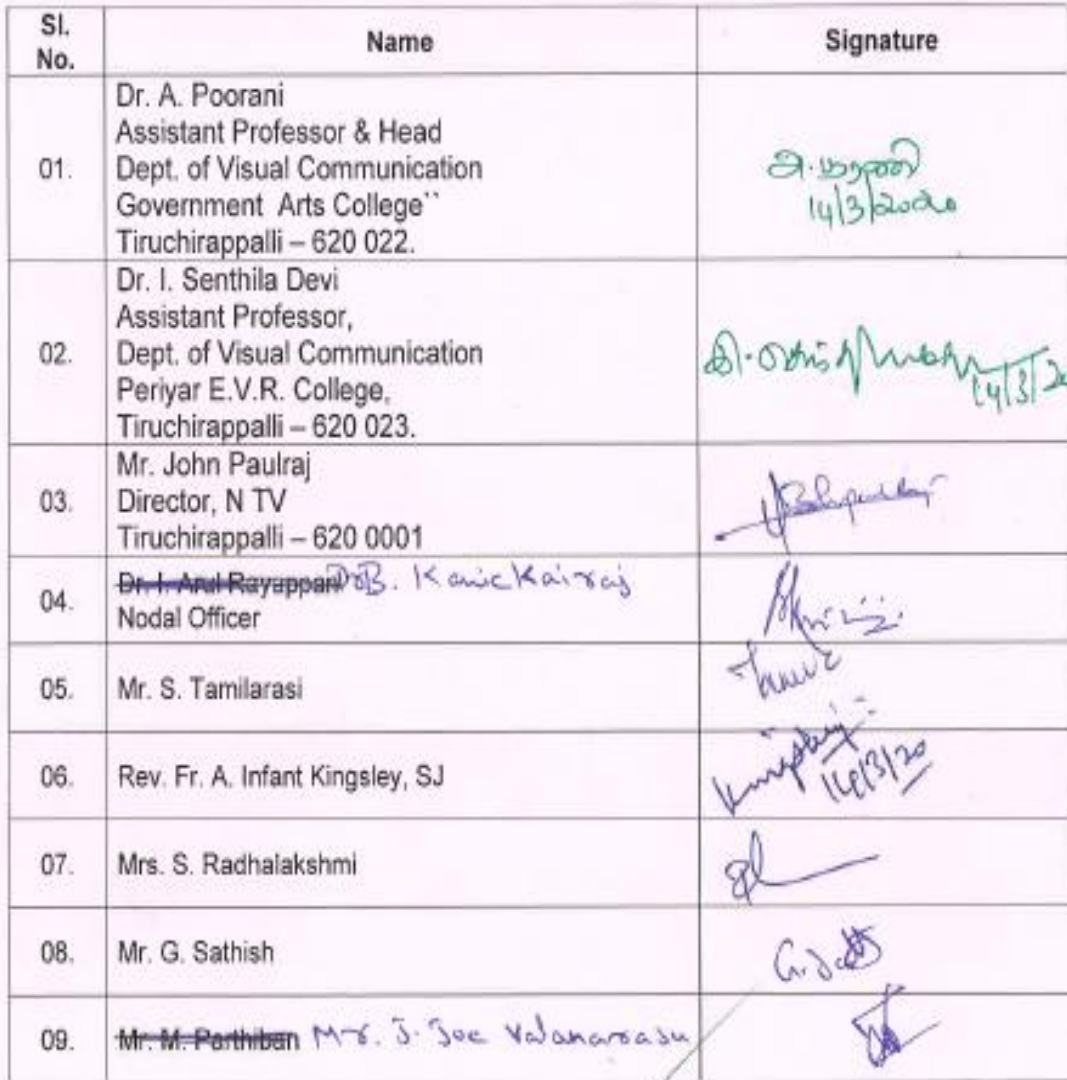 Sl. No.
Name
Signature
01.
Dr. A. Poorani
Assistant Professor & Head
Dept. of Visual Communication
Government Arts College``
Tiruchirappalli – 620 022.
14/3/2020
02.
Dr. I. Senthila Devi
Assistant Professor,
Dept. of Visual Communication
Periyar E.V.R. College,
Tiruchirappalli – 620 023.
14/3/20
03.
Mr. John Paulraj
Director, N TV
Tiruchirappalli – 620 0001
04.
Dr. I. Arul Rayappan Dr B. Kanickairaj
Nodal Officer
05.
Mr. S. Tamilarasi
06.
Rev. Fr. A. Infant Kingsley, SJ
14/3/20
07.
Mrs. S. Radhalakshmi
08.
Mr. G. Sathish
09.
Mr. M. Parthiban Mr. J. Joe Valanarasu